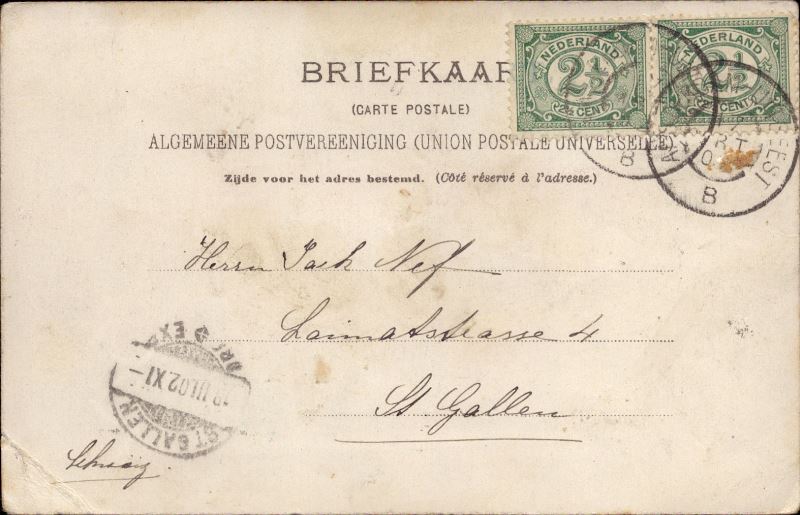 BRIEFKAAR
(CARTE POSTALE)
ALGEMEENE POSTVEREENIGING (UNION POSTALE UNIVERSELLE)
Zijde voor het adres bestemd. (Côté réservé à l'adresse.)
NEDERLAND
2½
CENT
NEDERLAND
2½
CENT
B
EEST
B
Herrn Jack Nef
Laimatstrasse 4
St Gallen
Schweiz
ST. GALLEN
III.02 XI